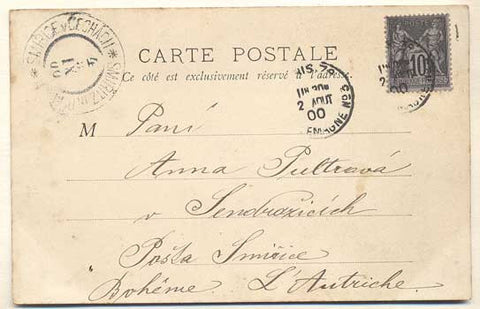 SMIŘICE v ČECHÁCH * SMIRITZ
CARTE POSTALE
Ce côté est exclusivement réservé à l'adresse.
10
2 AOUT
00
M Paní
Anna Pultrová
v Sendražicích
Pošta Smiřice
Bohême. L'Autriche.